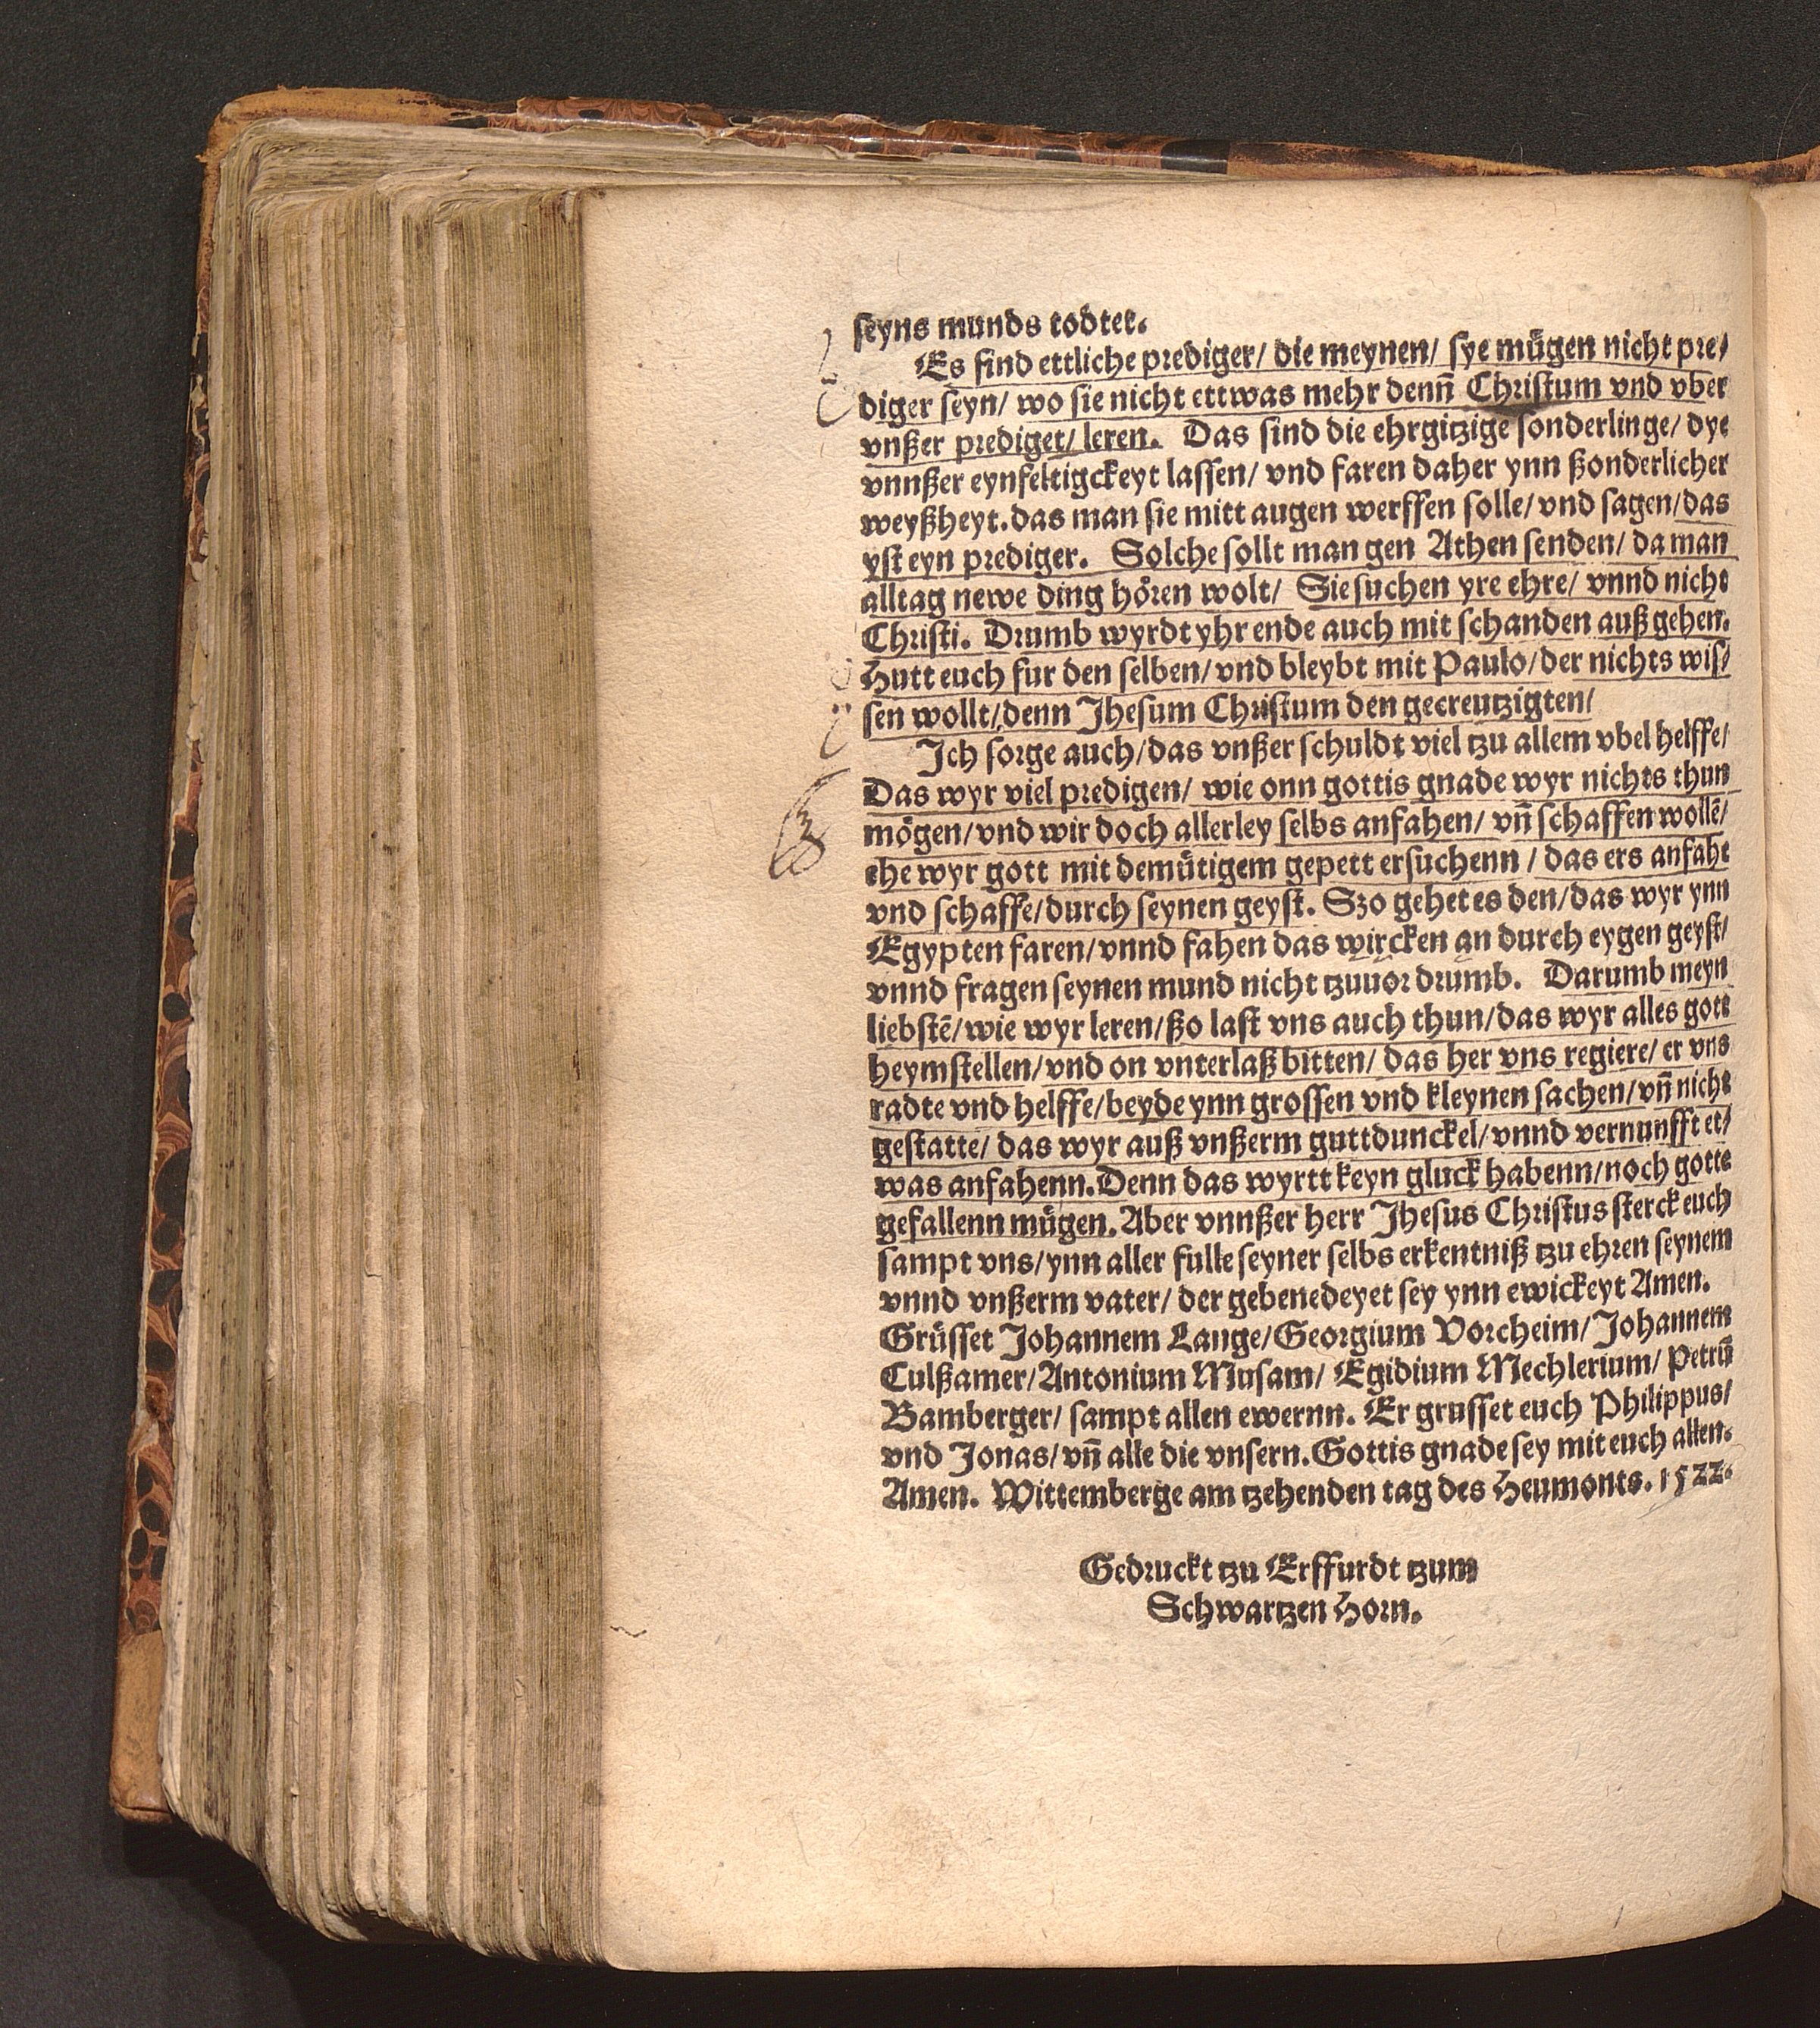 seyns munds todtet.
Es sind ettliche prediger/ die meynen/ sye mügen nicht pre/
diger seyn/ wo sie nicht ettwas mehr denn̄ Christum vnd vber
vnßer prediget/ leren. Das sind die ehrgitzige sonderlinge/ dye
vnnßer eynfeltigckeyt lassen/ vnd faren daher ynn ßonderlicher
weyßheyt. das man sie mitt augen werffen solle/ vnd sagen/ das
yst eyn prediger. Solche sollt man gen Athen senden/ da man
alltag newe ding hören wolt/ Sie suchen yre ehre/ vnnd nicht
Christi. Drumb wyrdt yhr ende auch mit schanden auß gehen.
Hutt euch fur den selben/ vnd bleybt mit Paulo/ der nichts wis/
sen wollt/ denn Jhesum Christum den gecreutzigten/
Ich sorge auch/ das vnßer schuldt viel tzu allem vbel helffe/
Das wyr viel predigen/ wie onn gottis gnade wyr nichts thun
mögen/ vnd wir doch allerley selbs anfahen/ vn̄ schaffen wollē/
ehe wyr gott mit demütigem gepett ersuchenn/ das ers anfaht
vnd schaffe/ durch seynen geyst. Szo gehet es den/ das wyr ynn
Egypten faren/ vnnd fahen das wircken an durch eygen geyst/
vnnd fragen seynen mund nicht tzuuor drumb. Darumb meyn
liebstē/ wie wyr leren/ ßo last vns auch thun/ das wyr alles gott
heymstellen/ vnd on vnterlaß bitten/ das her vns regiere/ er vns
radte vnd helffe/ beyde ynn grossen vnd kleynen sachen/ vn̄ nicht
gestatte/ das wyr auß vnßerm guttdunckel/ vnnd vernunfft et/
was anfahenn. Denn das wyrtt keyn gluck habenn/ noch gotte
gefallenn mügen. Aber vnnßer herr Jhesus Christus sterck euch
sampt vns/ ynn aller fulle seyner selbs erkentniß tzu ehren seynem
vnnd vnßerm vater/ der gebenedeyet sey ynn ewickeyt Amen.
Grüsset Johannem Lange/ Georgium Vorcheim/ Johannem
Culßamer/ Antonium Musam/ Egidium Mechlerium/ Petrū
Bamberger/ sampt allen ewernn. Er grusset euch Philippus/
vnd Jonas/ vn̄ alle die vnsern. Gottis gnade sey mit euch allen.
Amen. Wittemberge am tzehenden tag des Heumonts. 1522.
Gedruckt tzu Erffurdt tzum
Schwartzen Horn.